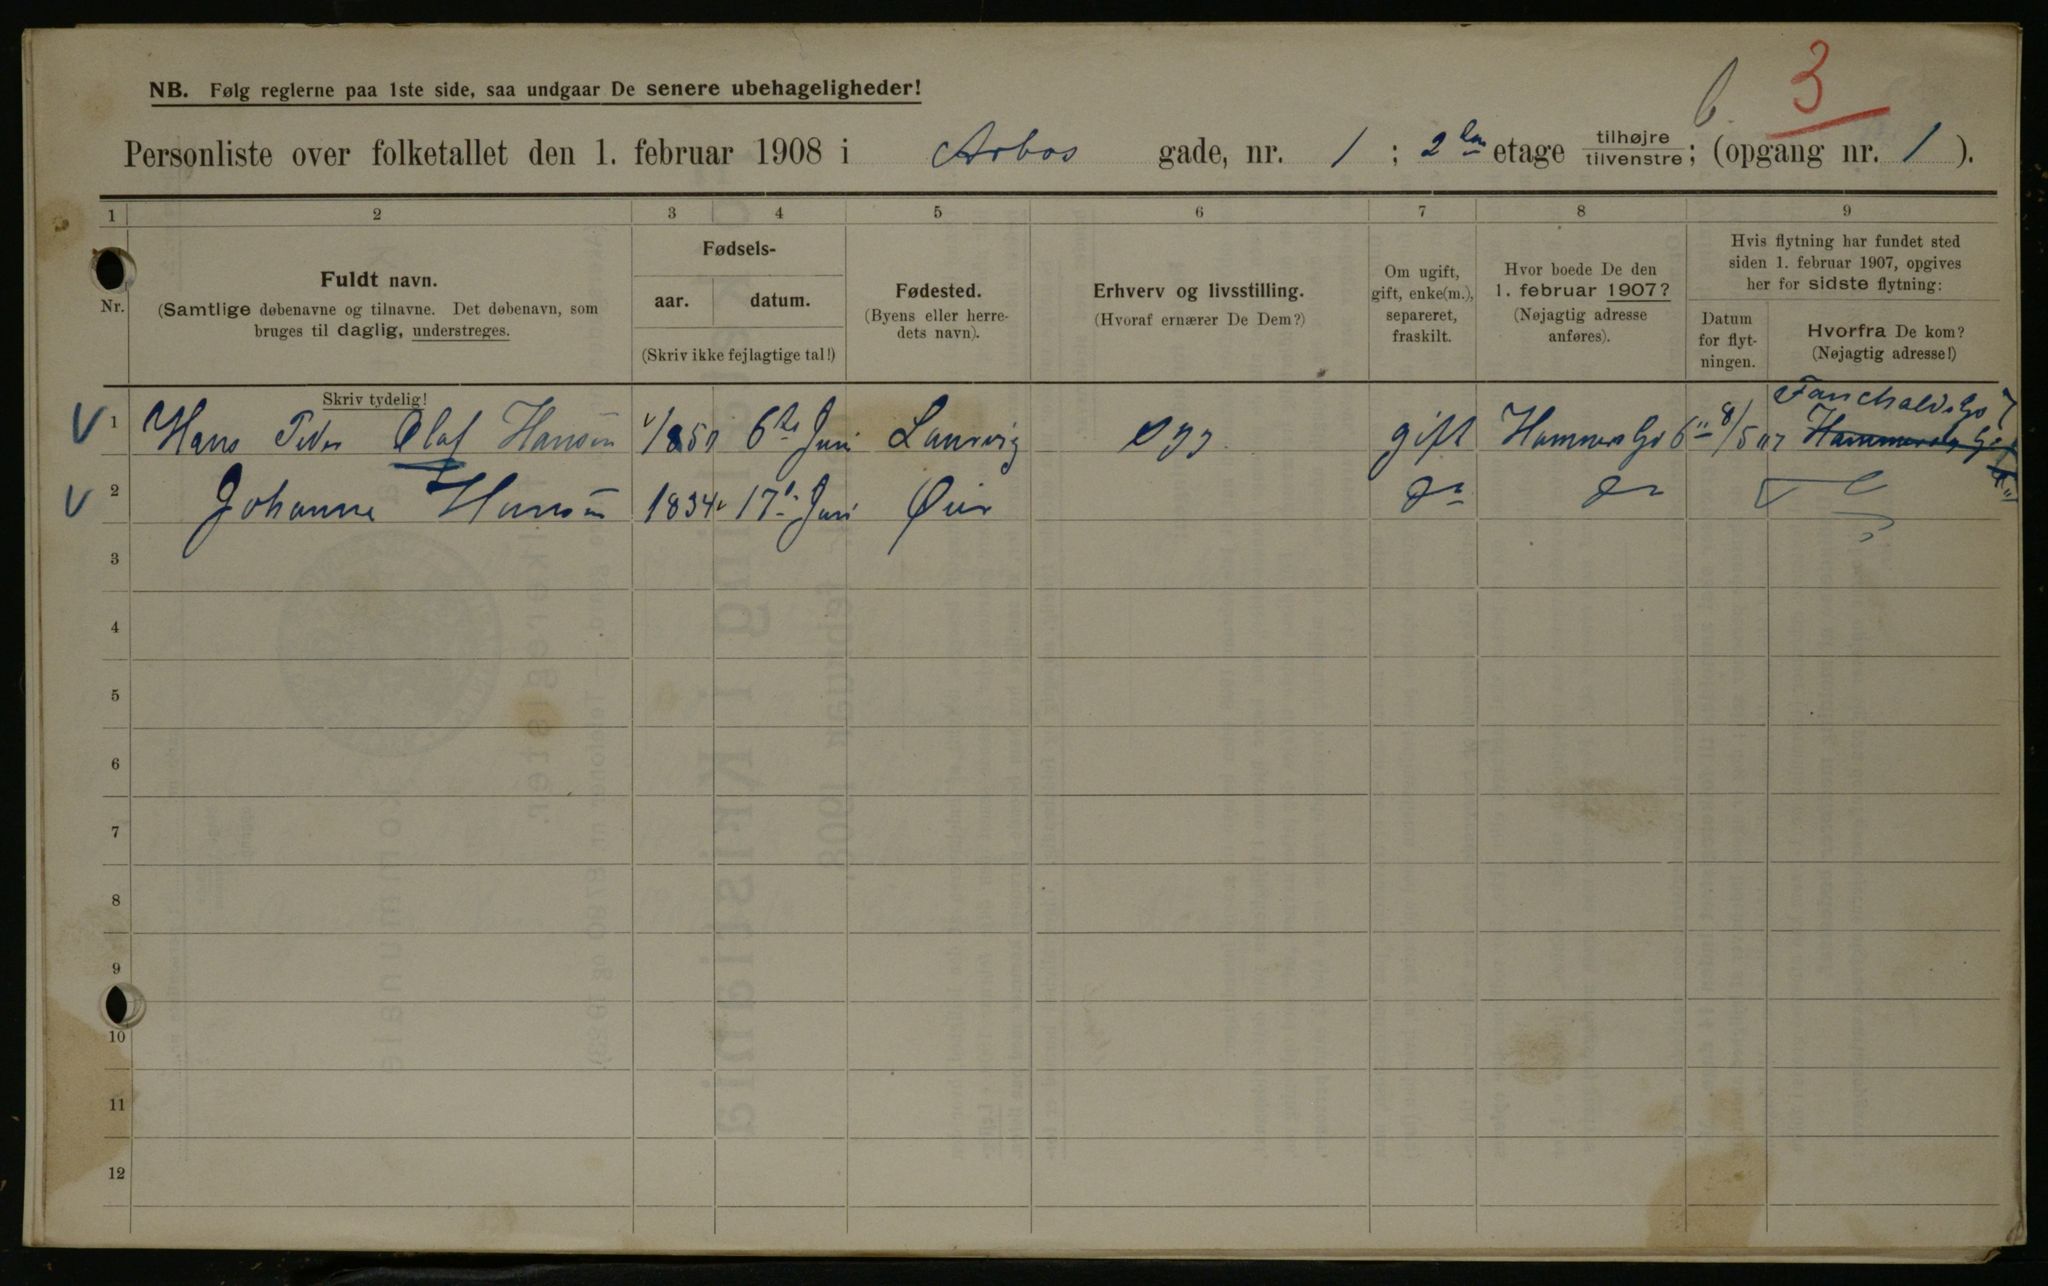 3
NB. Følg reglerne paa 1ste side, saa undgaar De senere ubehageligheder!
Personliste over folketallet den 1. februar 1908 i Arbos gade, nr. 1; 2 etage tilhøjre tilvenstre; (opgang nr. 1).
1 2 3 4 5 6 7 8 9
Nr.
Fuldt navn.
(Samtlige døbenavne og tilnavne. Det døbenavn, som
bruges til daglig, understreges.
Skriv tydelig!
Fødsels-
aar. datum.
(Skriv ikke fejlagtige tal!)
Fødested.
(Byens eller herre-
dets navn).
Erhverv og livsstilling.
(Hvoraf ernærer De Dem?)
Om ugift,
gift, enke(m.),
separeret,
fraskilt.
Hvor boede De den
1. februar 1907?
(Nøjagtig adresse
anføres).
Hvis flytning har fundet sted
siden 1. februar 1907, opgives
her for sidste flytning:
Datum
for flyt-
ningen.
Hvorfra De kom?
(Nøjagtig adresse!)
1 Hans Peder Olaf Hansen 6 Juni Laurvig gift
2 Johanne Hansen 1834 17 Juni do do
3
4
5
6
7
8
9
10
11
12